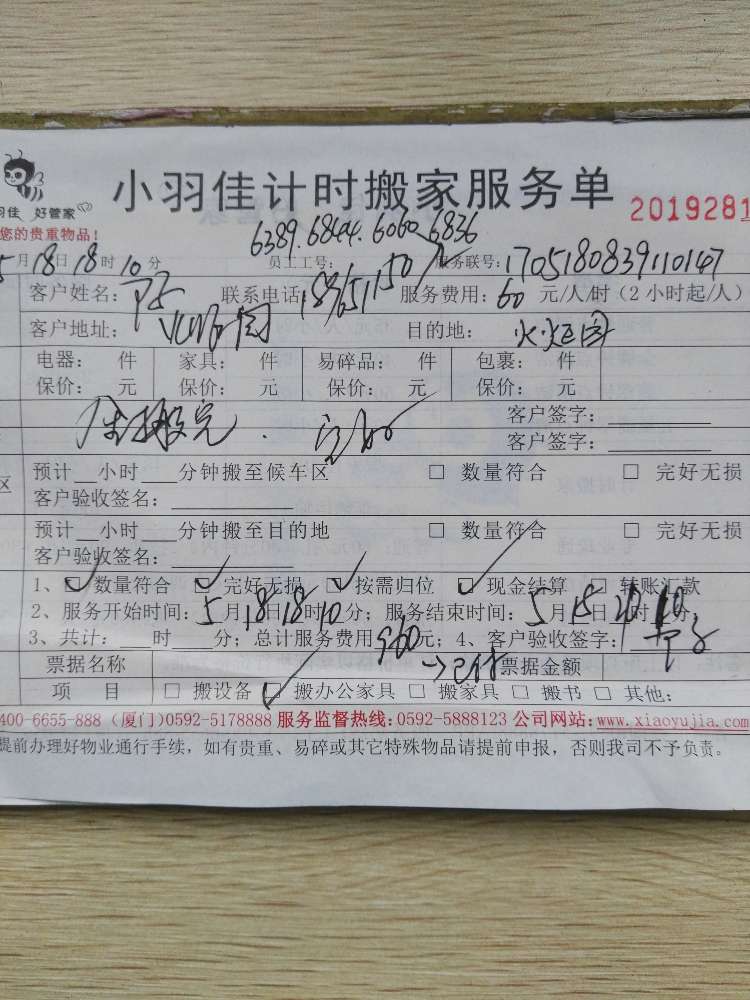 小羽佳计时搬家服务单
2019281
羽佳 好管家
您的贵重物品!
6389.6864.6060.6836
5月18日18时10分 员工工号: 服务联号:1705180839110147
客户姓名: 联系电话: 服务费用:60元/人/时(2小时起/人)
客户地址: 目的地:火炬园
电器: 件 家具: 件 易碎品: 件 包裹: 件
保价: 元 保价: 元 保价: 元 保价: 元
搬完.
客户签字:
客户签字:
区 预计__小时___分钟搬至候车区 □ 数量符合 □ 完好无损
客户验收签名:
预计__小时___分钟搬至目的地 □ 数量符合 □ 完好无损
客户验收签名:
1、☑ 数量符合 ☑ 完好无损 ☑ 按需归位 ☑ 现金结算 □ 转账汇款
2、服务开始时间:5月18日18时10分;服务结束时间:5月18日20时10分
3、共计:___时___分;总计服务费用960元;4、客户验收签字:
票据名称 →已付 票据金额
项 目 □ 搬设备 ☑ 搬办公家具 □ 搬家具 □ 搬书 □ 其他:
400-6655-888 (厦门)0592-5178888 服务监督热线:0592-5888123 公司网站:www.xiaoyujia.com
提前办理好物业通行手续,如有贵重、易碎或其它特殊物品请提前申报,否则我司不予负责。